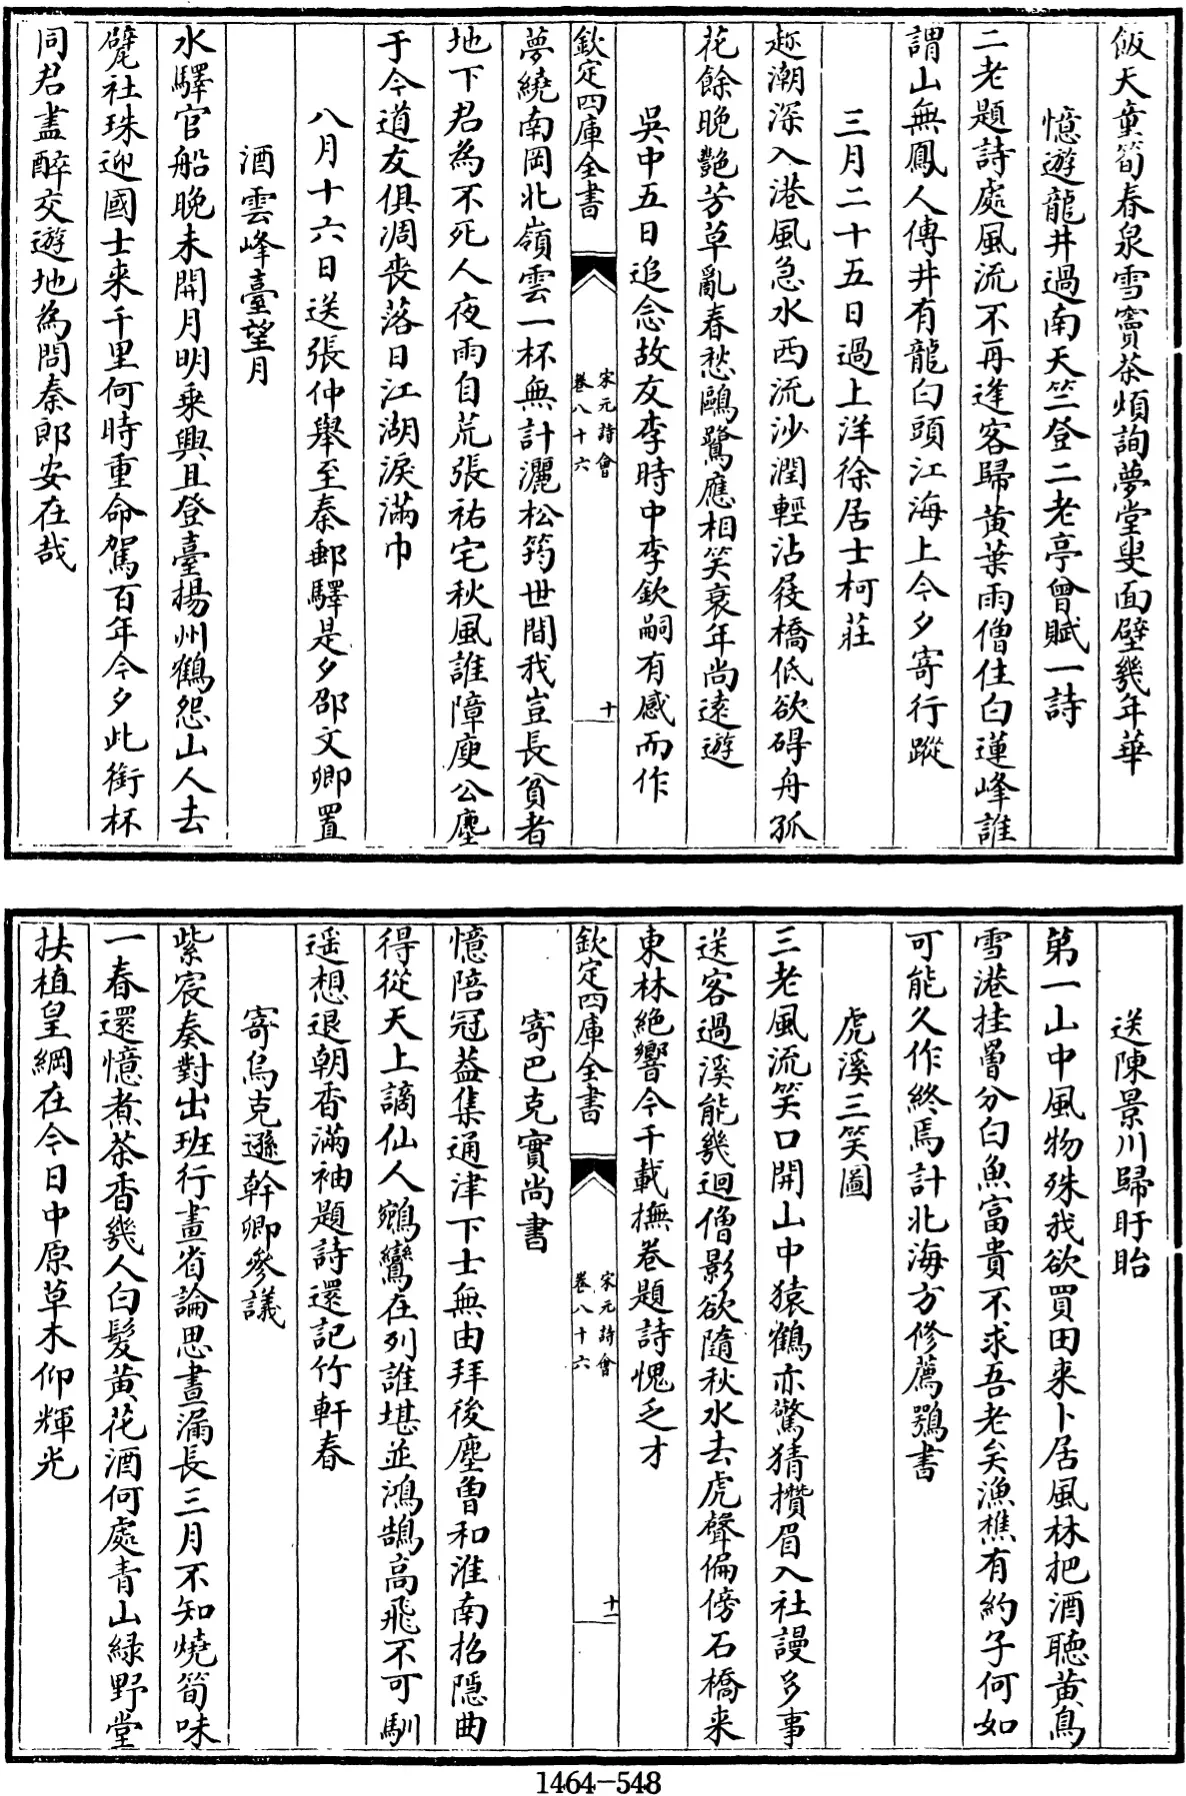 飯天童筍春泉雪竇茶煩詢夢堂叟面壁幾年華
憶遊龍井過南天竺登二老亭曾賦一詩
二老題詩處風流不再逢客歸黄葉雨僧住白蓮峰誰
謂山無鳳人傳井有龍白頭江海上今夕寄行蹤
三月二十五日過上洋徐居士柯莊
趂潮深入港風急水西流沙潤輕沾屐橋低欲碍舟孤
花餘晚艶芳草亂春愁鷗鷺應相笑衰年尚遠遊
吳中五日追念故友李時中李欽嗣有感而作
欽定四庫全書
宋元詩會
卷八十六
十
夢繞南岡北嶺雲一杯無計灑松筠世間我豈長貧者
地下君為不死人夜雨自荒張祐宅秋風誰障庾公塵
于今道友俱凋喪落日江湖淚滿巾
八月十六日送張仲舉至秦郵驛是夕邵文卿置
酒雲峰臺望月
水驛官船晚未開月明乘興且登臺揚州鶴怨山人去
甓社珠迎國士来千里何時重命駕百年今夕此銜杯
同君盡醉交遊地為問秦郎安在哉
送陳景川歸盱眙
第一山中風物殊我欲買田来卜居風林把酒聴黄鳥
雪港挂罾分白魚富貴不求吾老矣漁樵有約子何如
可能久作終焉計北海方修薦鶚書
虎溪三笑圖
三老風流笑口開山中猿鶴亦驚猜攢眉入社謾多事
送客過溪能幾迴僧影欲隨秋水去虎聲偏傍石橋来
東林絶響今千載撫巻題詩愧乏才
欽定四庫全書
宋元詩會
卷八十六
十一
寄巴克實尚書
憶陪冠葢集通津下士無由拜後塵曾和淮南招隱曲
得從天上謫仙人鵷鸞在列誰堪並鴻鵠高飛不可馴
遥想退朝香滿袖題詩還記竹軒春
寄烏克遜幹卿參議
紫宸奏對出班行畫省論思晝漏長三月不知燒筍味
一春還憶煮茶香幾人白髪黄花酒何處青山緑野堂
扶植皇綱在今日中原草木仰輝光
1464-548